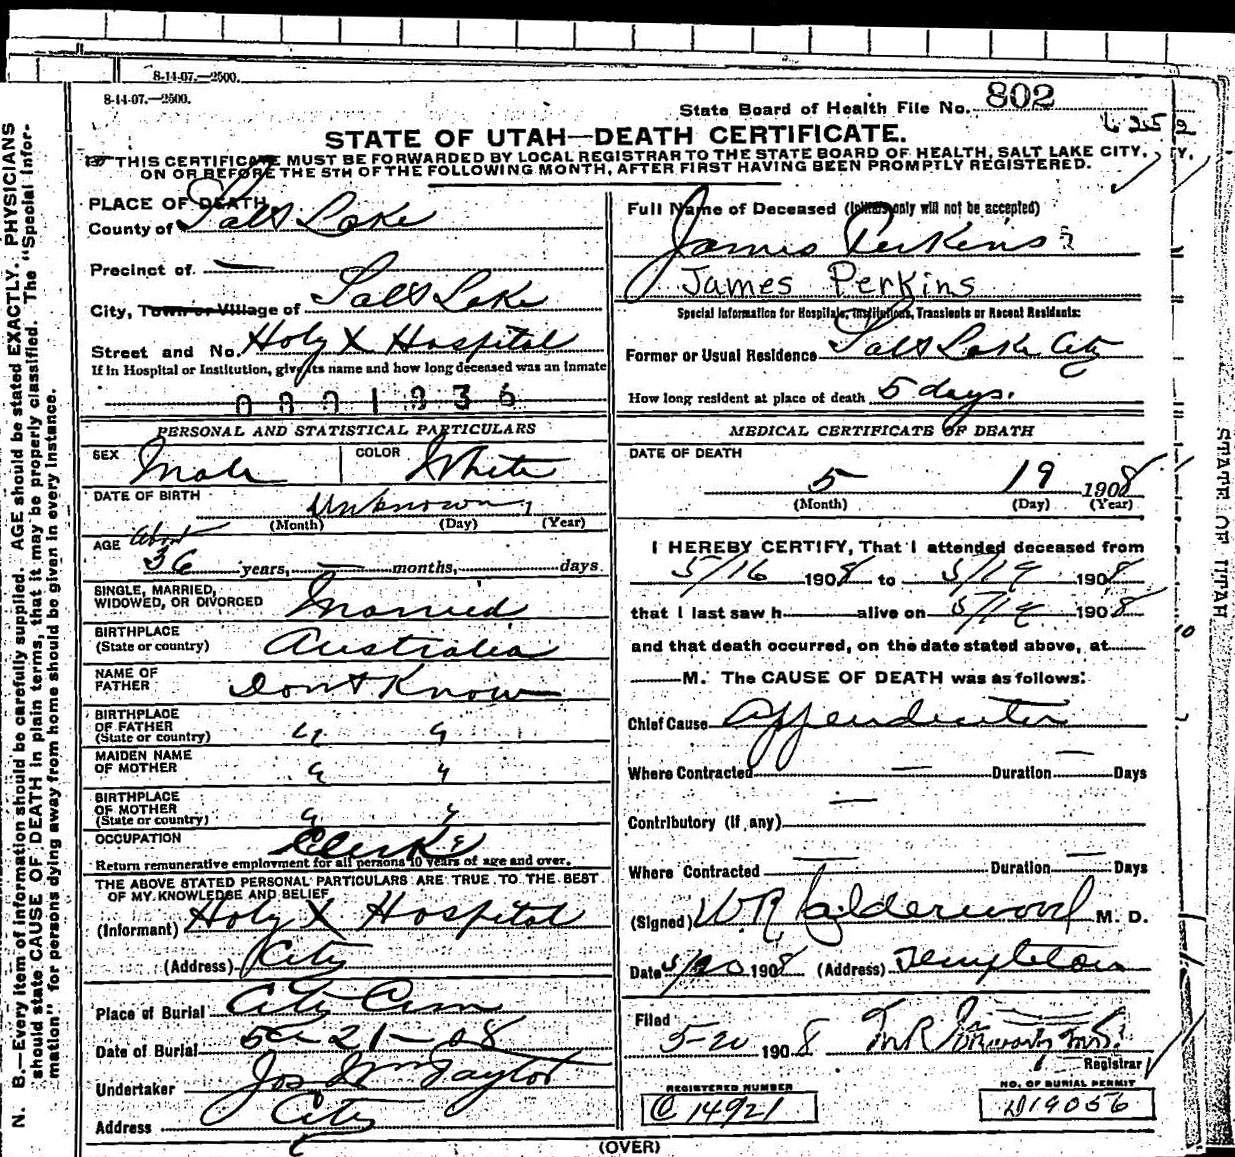 8-14-07.—2500.
8-14-07.—2500.
State Board of Health File No. 802
STATE OF UTAH—DEATH CERTIFICATE.
THIS CERTIFICATE MUST BE FORWARDED BY LOCAL REGISTRAR TO THE STATE BOARD OF HEALTH, SALT LAKE CITY,
ON OR BEFORE THE 5TH OF THE FOLLOWING MONTH, AFTER FIRST HAVING BEEN PROMPTLY REGISTERED.
PLACE OF DEATH
County of Salt Lake
Precinct of —
City, Town or Village of Salt Lake
Street and No. Holy X Hospital
If in Hospital or Institution, give its name and how long deceased was an inmate
Full Name of Deceased (Initials only will not be accepted)
James Perkins
James Perkins
Special Information for Hospitals, Institutions, Transients or Recent Residents:
Former or Usual Residence Salt Lake City
How long resident at place of death 5 days.
PERSONAL AND STATISTICAL PARTICULARS
SEX Male COLOR White
DATE OF BIRTH Unknown
(Month) (Day) (Year)
AGE About
36 years, — months, days.
SINGLE, MARRIED,
WIDOWED, OR DIVORCED Married
BIRTHPLACE
(State or country) Australia
NAME OF
FATHER Dont Know
BIRTHPLACE
OF FATHER
(State or country) " "
MAIDEN NAME
OF MOTHER " "
BIRTHPLACE
OF MOTHER
(State or country) " "
OCCUPATION Clerk
Return remunerative employment for all persons 10 years of age and over.
THE ABOVE STATED PERSONAL PARTICULARS ARE TRUE TO THE BEST
OF MY KNOWLEDGE AND BELIEF
(Informant) Holy X Hospital
(Address) City
Place of Burial City Cem
Date of Burial 5-21-08
Undertaker Jos Wm Taylor
Address City
MEDICAL CERTIFICATE OF DEATH
DATE OF DEATH
5 19 1908
(Month) (Day) (Year)
I HEREBY CERTIFY, That I attended deceased from
5/16 1908 to 5/19 1908
that I last saw h alive on 5/19 1908
and that death occurred, on the date stated above, at
M. The CAUSE OF DEATH was as follows:
Chief Cause Appendicitis
Where Contracted — Duration — Days
—
Contributory (if any)
Where Contracted — Duration — Days
(Signed) W.R. Calderwood M. D.
Date 5/20 1908 (Address) Templeton
Filed
5-20 1908
Registrar
REGISTERED NUMBER
C 14921
NO. OF BURIAL PERMIT
D19056
(OVER)
N. B.—Every item of information should be carefully supplied. AGE should be stated EXACTLY. PHYSICIANS
should state CAUSE OF DEATH in plain terms, that it may be properly classified. The "Special Infor-
mation" for persons dying away from home should be given in every instance.
STATE OF UTAH